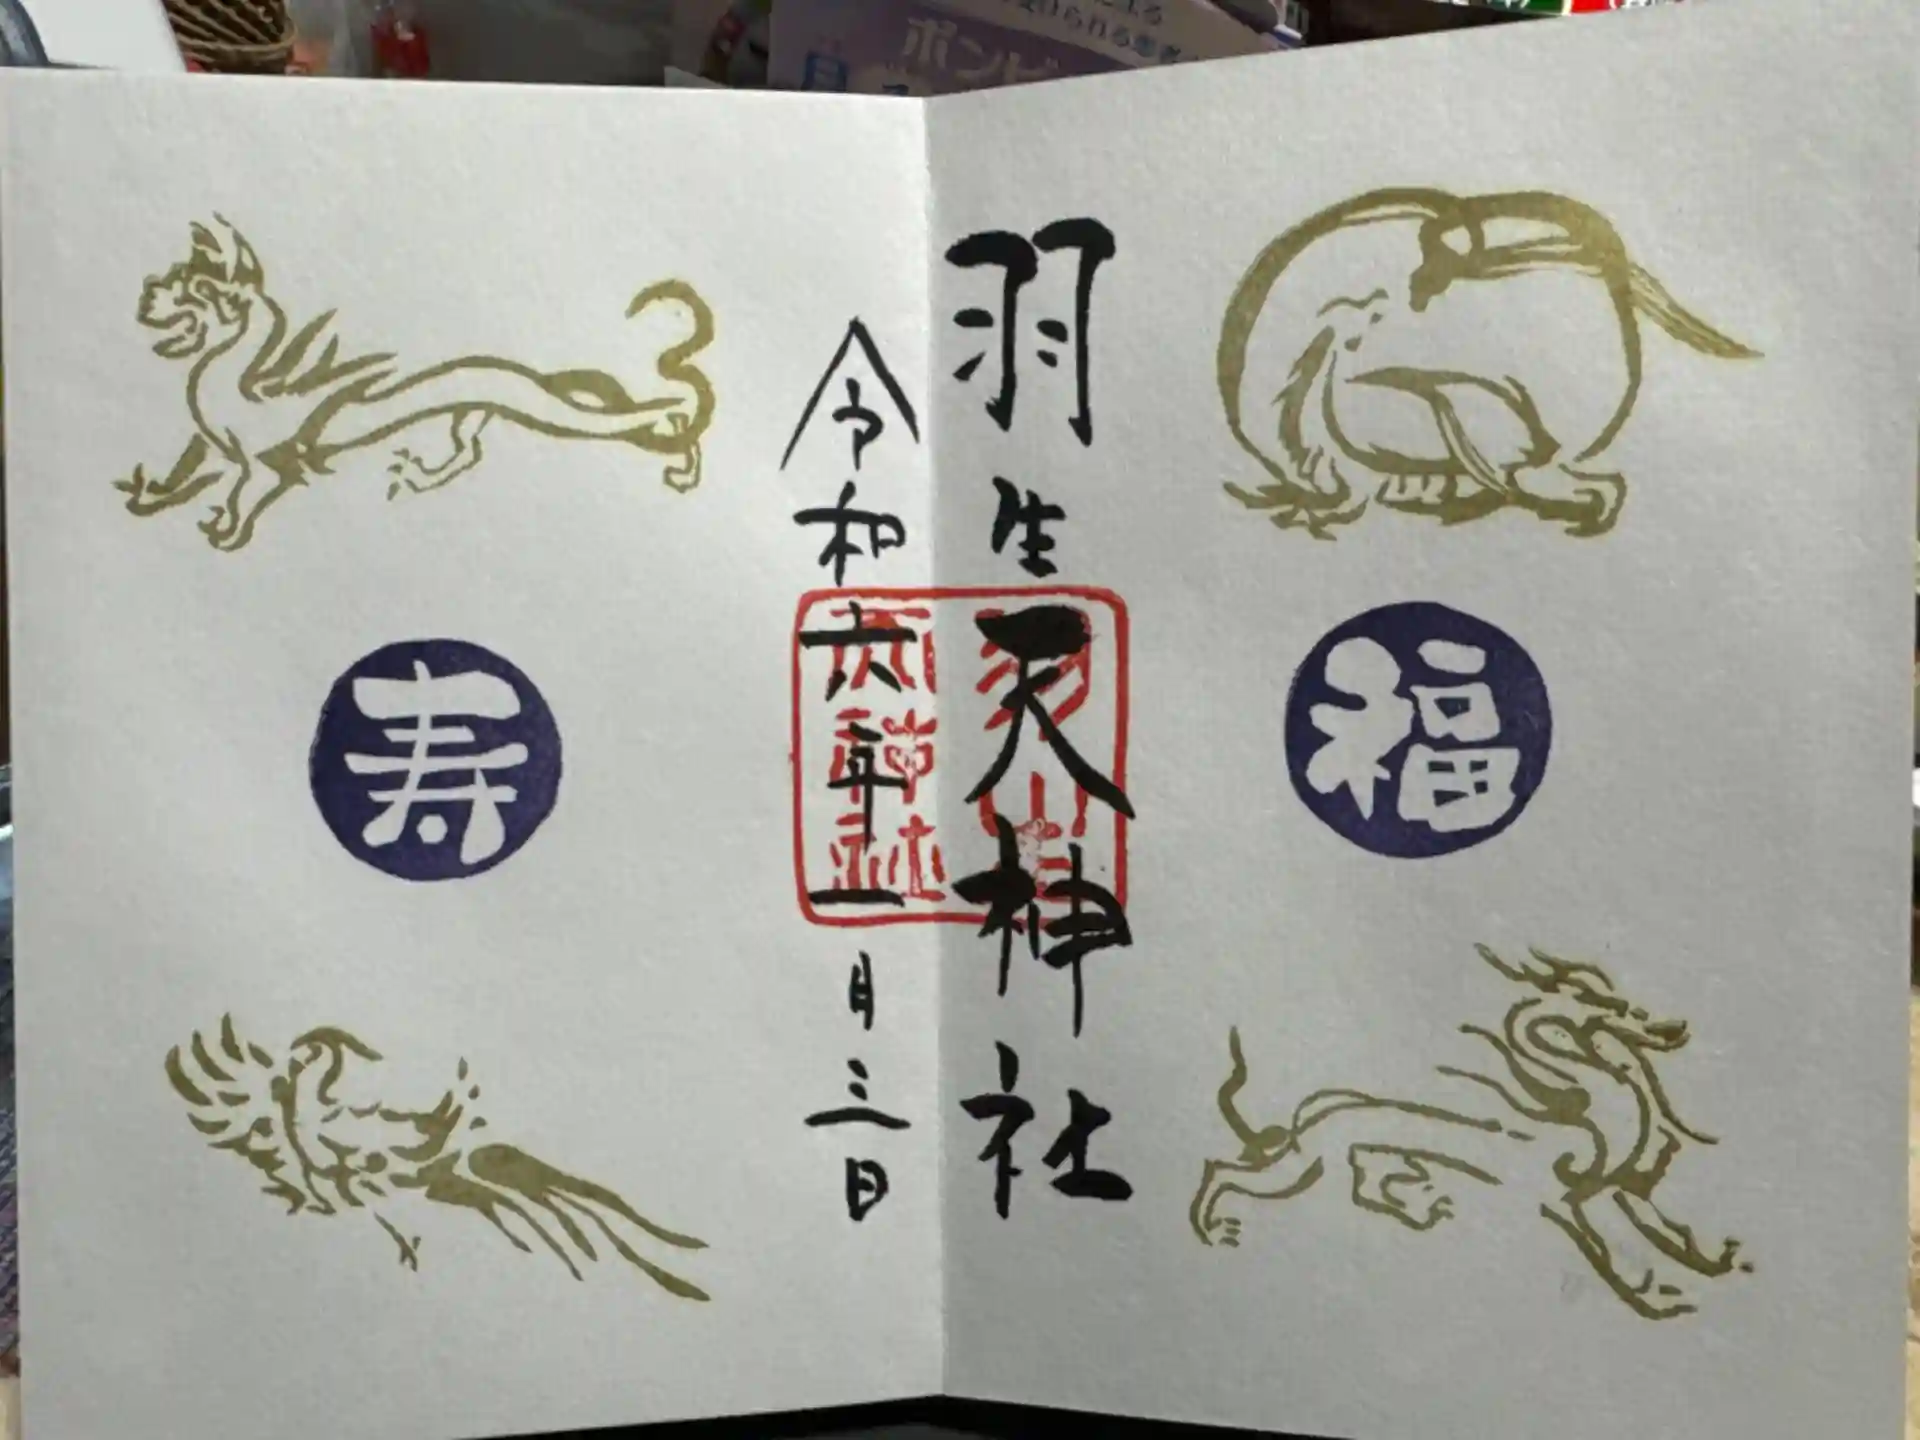 福
羽生天神社
令和六年一月三日
寿
ボンビ